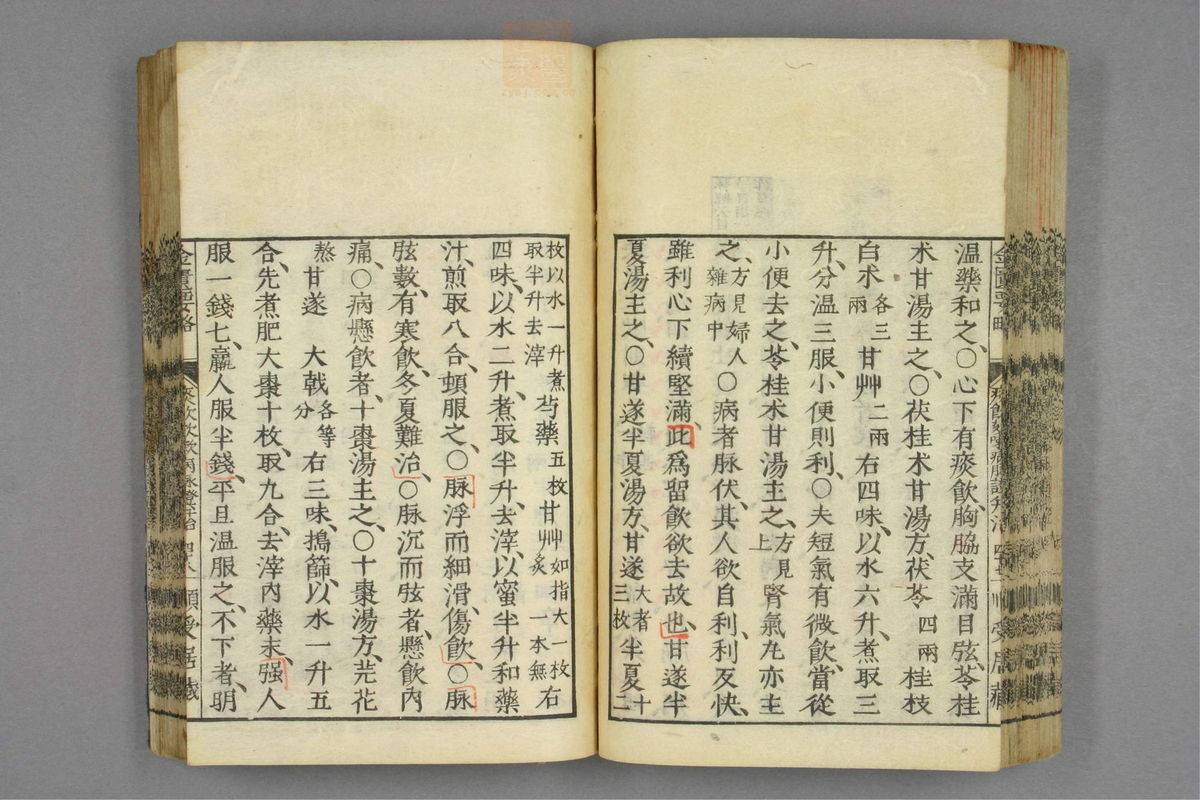 溫藥和之、○心下有痰飲、胸脇支滿目弦、苓桂
朮甘湯主之、○茯桂朮甘湯方、茯苓四兩桂枝
白朮各三兩甘艸二兩右四味、以水六升、煮取三
升、分溫三服、小便則利、○夫短氣有微飲、當從
小便去之、苓桂朮甘湯主之、方見上腎氣丸亦主
之、方見婦人雜病中○病者脉伏、其人欲自利、利反快、
雖利心下續堅滿、此爲留飲欲去故也、甘遂半
夏湯主之、○甘遂半夏湯方、甘遂大者三枚半夏十二
枚以水一升煮取半升去滓芍藥五枚甘艸如指大一枚炙一本無右
四味、以水二升、煮取半升、去滓、以蜜半升和藥
汁、煎取八合、頓服之、○脉浮而細滑、傷飲、○脉
弦數、有寒飲、冬夏難治、○脉沉而弦者、懸飲內
痛、○病懸飲者、十棗湯主之、○十棗湯方、芫花
熬甘遂 大戟各等分右三味、搗篩、以水一升五
合、先煮肥大棗十枚、取九合、去滓內藥末、强人
服一錢七、羸人服半錢、平旦溫服之、不下者、明
金匱要略